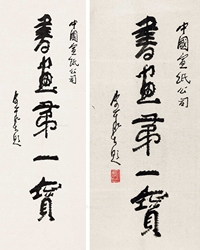 中國宣紙公司
書畫第一寶
中國宣紙公司
書畫第一寶